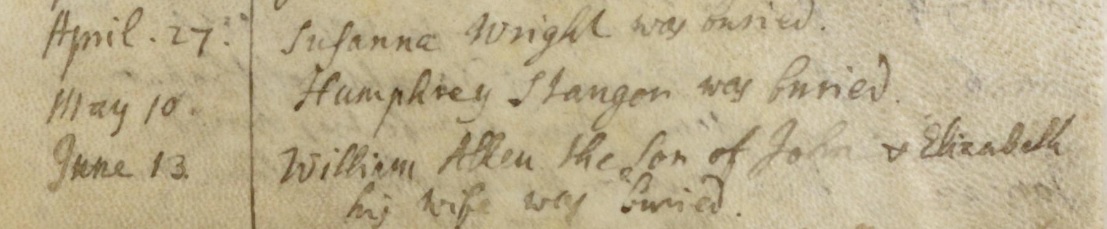 April. 27. Susanna Wright was buried.
May 10. Humphrey Stangon was buried.
June 13. William Allen the Son of John & Elizabeth
his wife was buried.